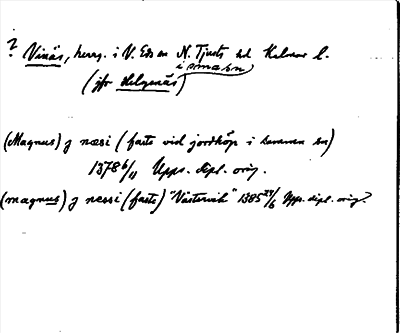 ? Vinäs, herrg. i V. Eds sn N. Tjusts hd Kalmar l.
i samma sn
(jfr Helgenäs)
(Magnus) j næsi (faste vid jordköp i samma sn)
1378 6/11 Upps. dipl. orig.
(magnus) j næssi (faste) "Västervik" 1385 24/6 Upps. dipl. orig.?